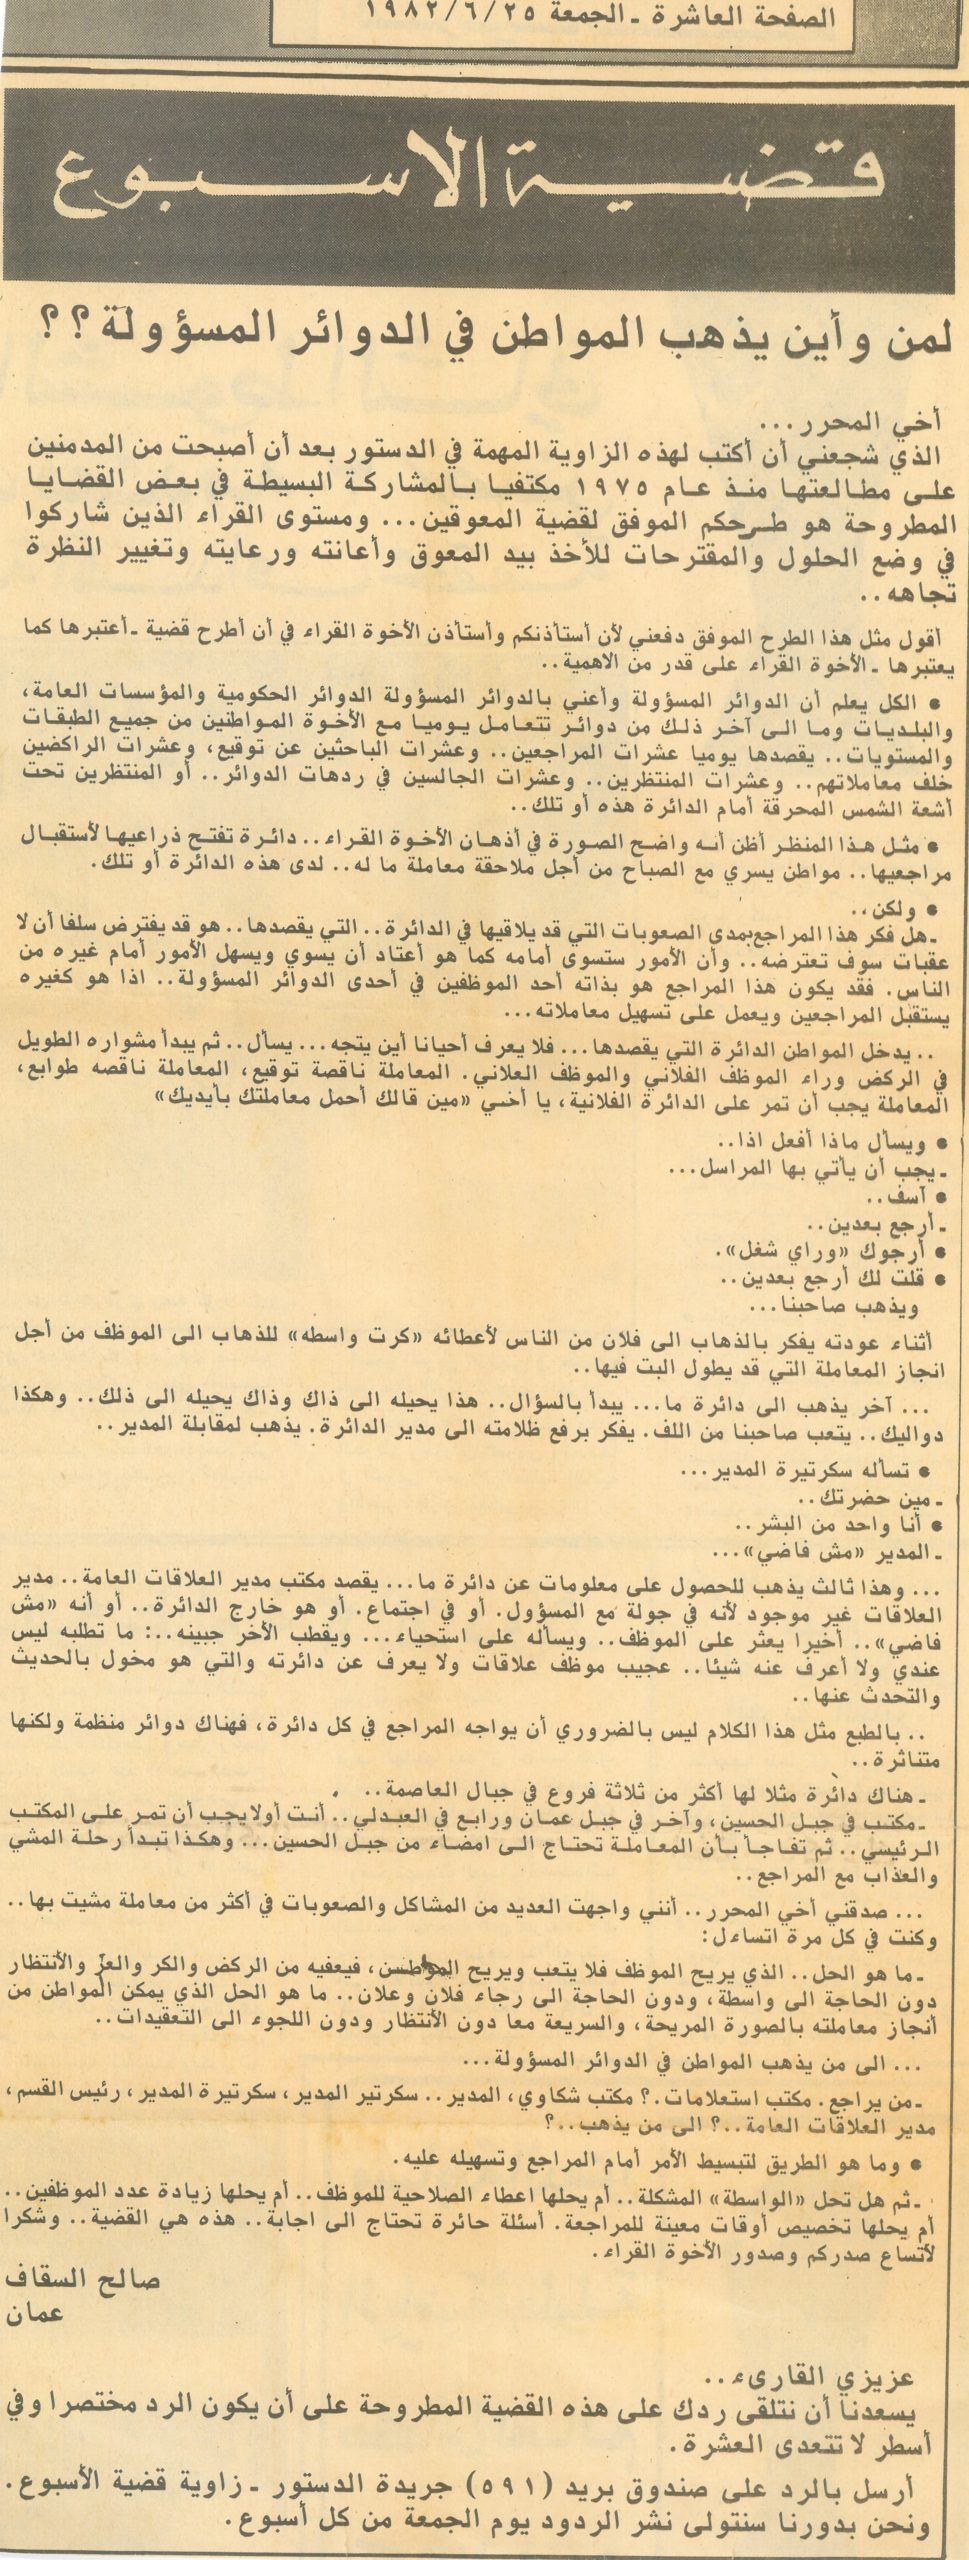 الصفحة العاشرة ـ الجمعة ٢٥/٦/١٩٨٢
قضية الاسبوع
لمن وأين يذهب المواطن في الدوائر المسؤولة ؟ ؟
أخي المحرر...
الذي شجعني أن أكتب لهذه الزاوية المهمة في الدستور بعد أن أصبحت من المدمنين
على مطالعتها منذ عام ١٩٧٥ مكتفيا بالمشاركة البسيطة في بعض القضايا
المطروحة هو طرحكم الموفق لقضية المعوقين... ومستوى القراء الذين شاركوا
في وضع الحلول والمقترحات للأخذ بيد المعوق وأعانته ورعايته وتغيير النظرة
تجاهه..
أقول مثل هذا الطرح الموفق دفعني لأن أستأذنكم وأستأذن الأخوة القراء في أن أطرح قضية ـ أعتبرها كما
يعتبرها ـ الأخوة القراء على قدر من الاهمية..
● الكل يعلم أن الدوائر المسؤولة وأعني بالدوائر المسؤولة الدوائر الحكومية والمؤسسات العامة،
والبلديات وما الى آخر ذلك من دوائر تتعامل يوميا مع الأخوة المواطنين من جميع الطبقات
والمستويات.. يقصدها يوميا عشرات المراجعين.. وعشرات الباحثين عن توقيع، وعشرات الراكضين
خلف معاملاتهم.. وعشرات المنتظرين.. وعشرات الجالسين في ردهات الدوائر.. أو المنتظرين تحت
أشعة الشمس المحرقة أمام الدائرة هذه أو تلك..
● مثل هذا المنظر أظن أنه واضح الصورة في أذهان الأخوة القراء.. دائرة تفتح ذراعيها لأستقبال
مراجعيها.. مواطن يسري مع الصباح من أجل ملاحقة معاملة ما له.. لدى هذه الدائرة أو تلك.
● ولكن..
ـ هل فكر هذا المراجع بمدى الصعوبات التي قد يلاقيها في الدائرة.. التي يقصدها.. هو قد يفترض سلفا أن لا
عقبات سوف تعترضه.. وأن الأمور ستسوى أمامه كما هو أعتاد أن يسوي ويسهل الأمور أمام غيره من
الناس. فقد يكون هذا المراجع هو بذاته أحد الموظفين في أحدى الدوائر المسؤولة.. اذا هو كغيره
يستقبل المراجعين ويعمل على تسهيل معاملاته...
.. يدخل المواطن الدائرة التي يقصدها... فلا يعرف أحيانا أين يتجه... يسأل.. ثم يبدأ مشواره الطويل
في الركض وراء الموظف الفلاني والموظف العلاني. المعاملة ناقصة توقيع، المعاملة ناقصه طوابع،
المعاملة يجب أن تمر على الدائرة الفلانية، يا أخي «مين قالك أحمل معاملتك بأيديك»
● ويسأل ماذا أفعل اذا..
ـ يجب أن يأتي بها المراسل...
● آسف..
ـ أرجع بعدين..
● أرجوك «وراي شغل».
● قلت لك أرجع بعدين..
ويذهب صاحبنا...
أثناء عودته يفكر بالذهاب الى فلان من الناس لأعطائه «كرت واسطه» للذهاب الى الموظف من أجل
انجاز المعاملة التي قد يطول البت فيها..
... آخر يذهب الى دائرة ما... يبدأ بالسؤال.. هذا يحيله الى ذاك وذاك يحيله الى ذلك.. وهكذا
دواليك.. يتعب صاحبنا من اللف. يفكر برفع ظلامته الى مدير الدائرة. يذهب لمقابلة المدير..
● تسأله سكرتيرة المدير...
ـ مين حضرتك..
● أنا واحد من البشر..
ـ المدير «مش فاضي»...
... وهذا ثالث يذهب للحصول على معلومات عن دائرة ما... يقصد مكتب مدير العلاقات العامة.. مدير
العلاقات غير موجود لأنه في جولة مع المسؤول. أو في اجتماع. أو هو خارج الدائرة.. أو أنه «مش
فاضي».. أخيرا يعثر على الموظف.. ويسأله على استحياء... ويقطب الأخر جبينه..: ما تطلبه ليس
عندي ولا أعرف عنه شيئا.. عجيب موظف علاقات ولا يعرف عن دائرته والتي هو مخول بالحديث
والتحدث عنها..
.. بالطبع مثل هذا الكلام ليس بالضروري أن يواجه المراجع في كل دائرة، فهناك دوائر منظمة ولكنها
متناثرة..
ـ هناك دائرة مثلا لها أكثر من ثلاثة فروع في جبال العاصمة..
ـ مكتب في جبل الحسين، وآخر في جبل عمان ورابع في العبدلي.. أنت أولا يجب أن تمر على المكتب
الرئيسي.. ثم تفاجأ بأن المعاملة تحتاج الى امضاء من جبل الحسين... وهكذا تبدأ رحلة المشي
والعذاب مع المراجع..
... صدقني أخي المحرر.. أنني واجهت العديد من المشاكل والصعوبات في أكثر من معاملة مشيت بها..
وكنت في كل مرة اتساءل:
ـ ما هو الحل.. الذي يريح الموظف فلا يتعب ويريح المواطن، فيعفيه من الركض والكر والعز والأنتظار
دون الحاجة الى واسطة، ودون الحاجة الى رجاء فلان وعلان.. ما هو الحل الذي يمكن المواطن من
أنجاز معاملته بالصورة المريحة، والسريعة معا دون الأنتظار ودون اللجوء الى التعقيدات..
... الى من يذهب المواطن في الدوائر المسؤولة...
ـ من يراجع. مكتب استعلامات.؟ مكتب شكاوي، المدير.. سكرتير المدير، سكرتيرة المدير، رئيس القسم،
مدير العلاقات العامة..؟ الى من يذهب..؟
● وما هو الطريق لتبسيط الأمر أمام المراجع وتسهيله عليه.
ـ ثم هل تحل «الواسطة» المشكلة.. أم يحلها اعطاء الصلاحية للموظف.. أم يحلها زيادة عدد الموظفين..
أم يحلها تخصيص أوقات معينة للمراجعة. أسئلة حائرة تحتاج الى اجابة.. هذه هي القضية.. وشكرا
لأتساع صدركم وصدور الأخوة القراء.
صالح السقاف
عمان
عزيزي القارىء..
يسعدنا أن نتلقى ردك على هذه القضية المطروحة على أن يكون الرد مختصرا وفي
أسطر لا تتعدى العشرة.
أرسل بالرد على صندوق بريد (٥٩١) جريدة الدستور ـ زاوية قضية الأسبوع.
ونحن بدورنا سنتولى نشر الردود يوم الجمعة من كل أسبوع.